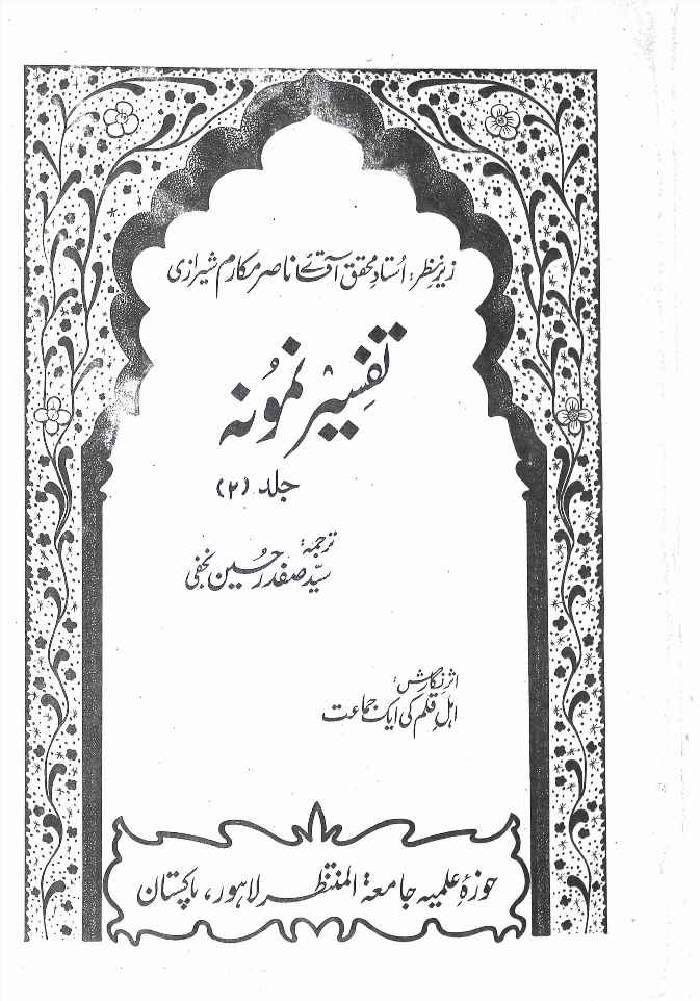 زیرِ نظر: اُستادِ محقق آقائے ناصر مکارم شیرازی
تفسیرِ نمُونہ
جلد (۲)
ترجمہ:
سیّد صفدر حُسین نجفی
اثر نگارش:
اہلِ قلم کی ایک جماعت
حوزۂ علمیہ جامعۃ المنتظر لاہور، پاکستان